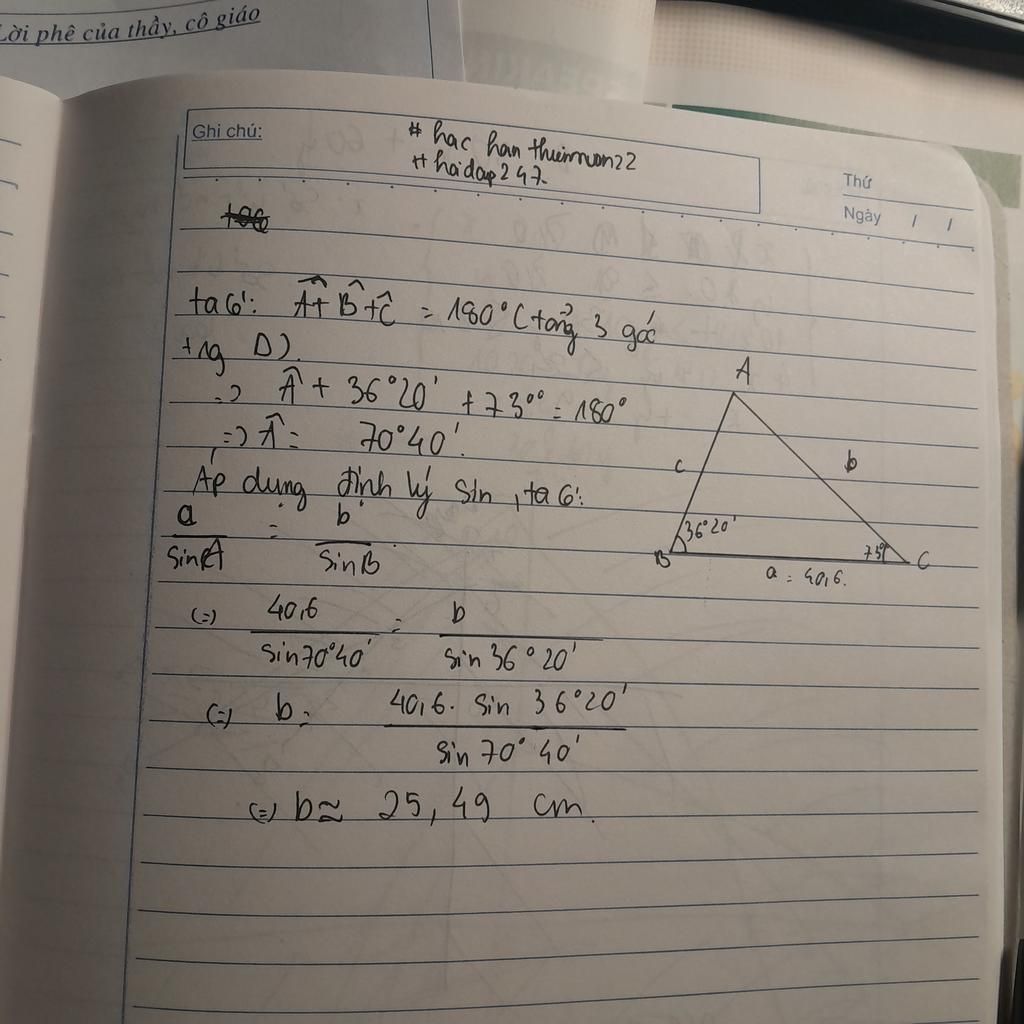 Lời phê của thầy, cô giáo
Ghi chú:
# hac han thuimuon22
# hoidap247.
Thứ
Ngày / /
ta có: Â + B̂ + Ĉ = 180° (tổng 3 góc
trg Δ).
=> Â + 36°20' + 73°° = 180°
=> Â = 70°40'.
Áp dụng định lý sin, ta có:
a/sinA = b/sinB
(=) 40,6/sin70°40' = b/sin36°20'
(=) b = 40,6. sin 36°20'/sin 70°40'
(=) b ≈ 25,49 cm.
A
c
b
36°20'
73°
B
C
a = 40,6.